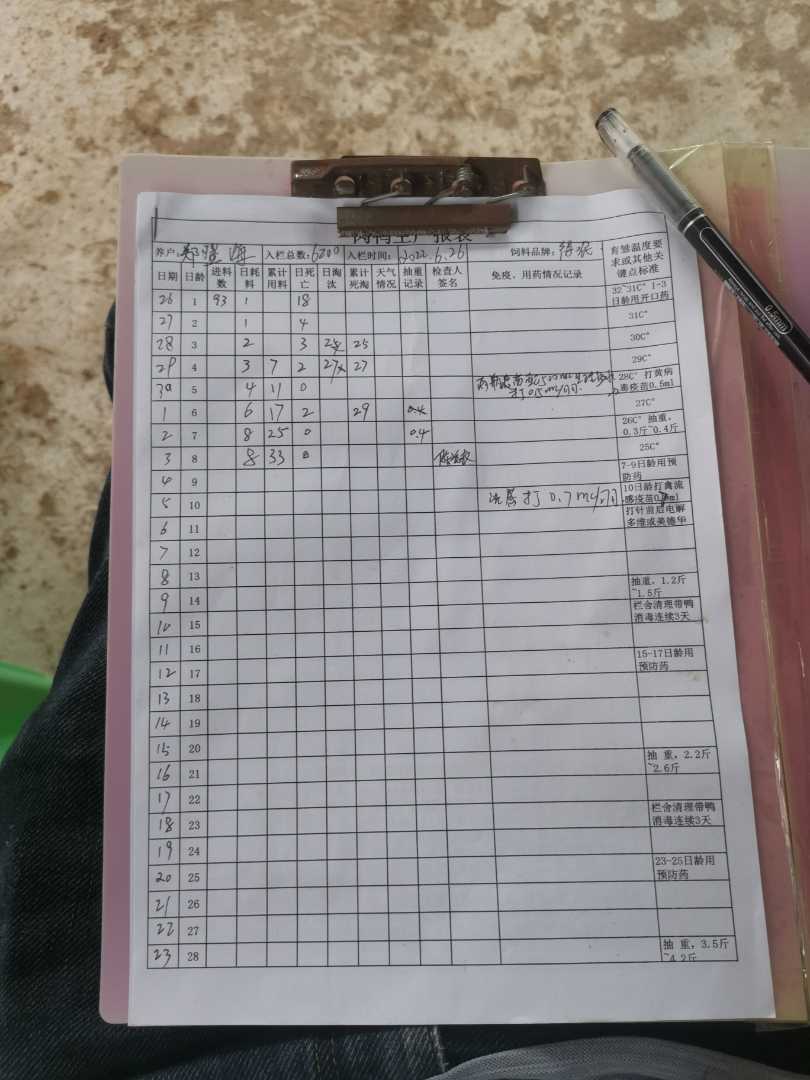 养户: 入栏总数:6200 入栏时间:2022.6.26 饲料品牌: 育雏温度要求或其他关键点标准
日期 日龄 进料数 日耗料 累计用料 日死亡 日淘汰 累计死淘 天气情况 抽重记录 检查人签名 免疫、用药情况记录
26 1 93 1 18 32~31C° 1-3日龄用开口药
27 2 1 4 31C°
28 3 2 3 25 30C°
29 4 3 7 2 27 29C°
30 5 4 11 0 打0.5ml/羽 28C° 打黄病毒疫苗0.5ml
1 6 6 17 2 29 0.4 27C°
2 7 8 25 0 0.4 26C° 抽重,0.3斤~0.4斤
3 8 8 33 0 25C°
4 9 7-9日龄用预防药
5 10 打0.7ml/羽 10日龄打禽流感疫苗
6 11 打针前后电解多维或美德华
7 12
8 13 抽重,1.2斤~1.5斤
9 14 栏舍清理带鸭消毒连续3天
10 15
11 16 15-17日龄用预防药
12 17
13 18
14 19
15 20 抽 重,2.2斤~2.6斤
16 21
17 22 栏舍清理带鸭消毒连续3天
18 23
19 24 23-25日龄用预防药
20 25
21 26
22 27
23 28 抽 重,3.5斤~4.2斤
0.5mm